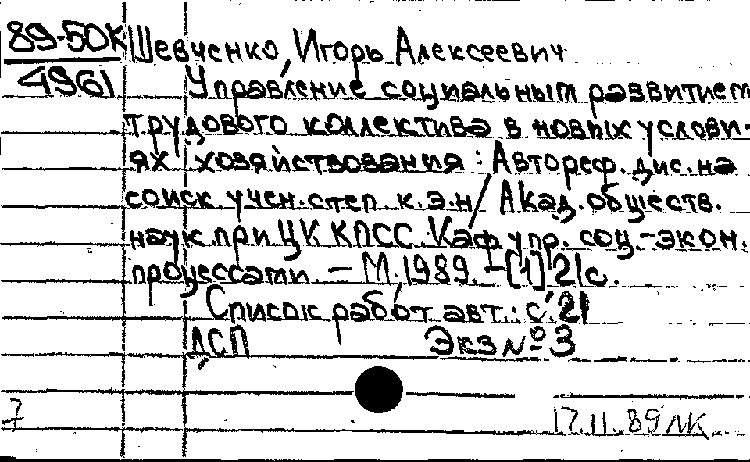 89-50К
4961
Шевченко, Игорь Алексеевич
Управление социальным развитием
трудового коллектива в новых услови-
ях хозяйствования : Автореф. дис. на
соиск. учен. степ. к.э.н / Акад. обществ.
наук при ЦК КПСС. Каф упр. соц.-экон.
процессами. – М., 1989. – [1] 21 с.
Список работ авт.: с. 21
ДСП Экз № 3
7 17.11.89 ЛК